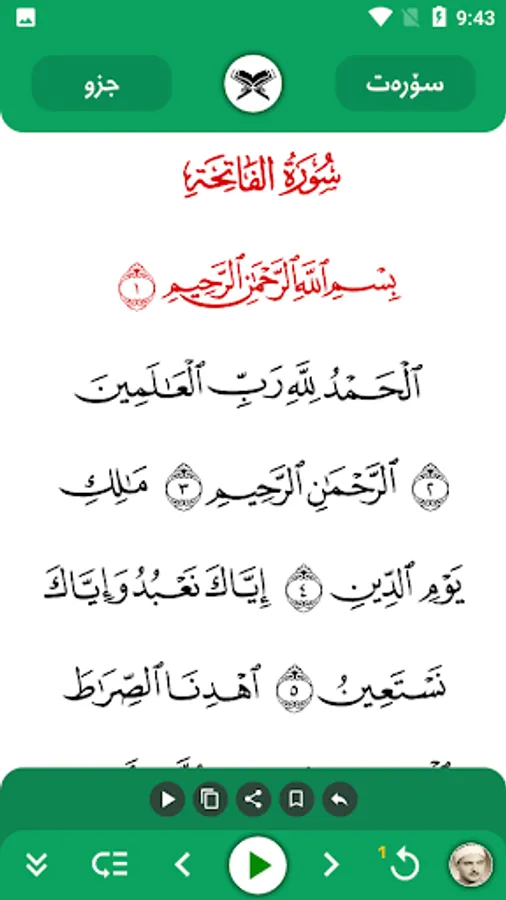 9:43
سۆرەت
جزو
سُورَةُ الفَاتِحَةِ
بِسْمِ ٱللَّهِ ٱلرَّحْمَٰنِ ٱلرَّحِيمِ ١
ٱلْحَمْدُ لِلَّهِ رَبِّ ٱلْعَٰلَمِينَ
٢ ٱلرَّحْمَٰنِ ٱلرَّحِيمِ ٣ مَٰلِكِ
يَوْمِ ٱلدِّينِ ٤ إِيَّاكَ نَعْبُدُ وَإِيَّاكَ
نَسْتَعِينُ ٥ ٱهْدِنَا ٱلصِّرَٰطَ
1